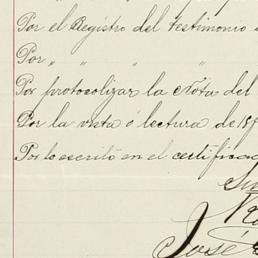 Por el Registro del testimonio
Por " " " "
Por protocolizar la Nota del
Por la vista ó lectura de
Por lo escrito en el certificad
José